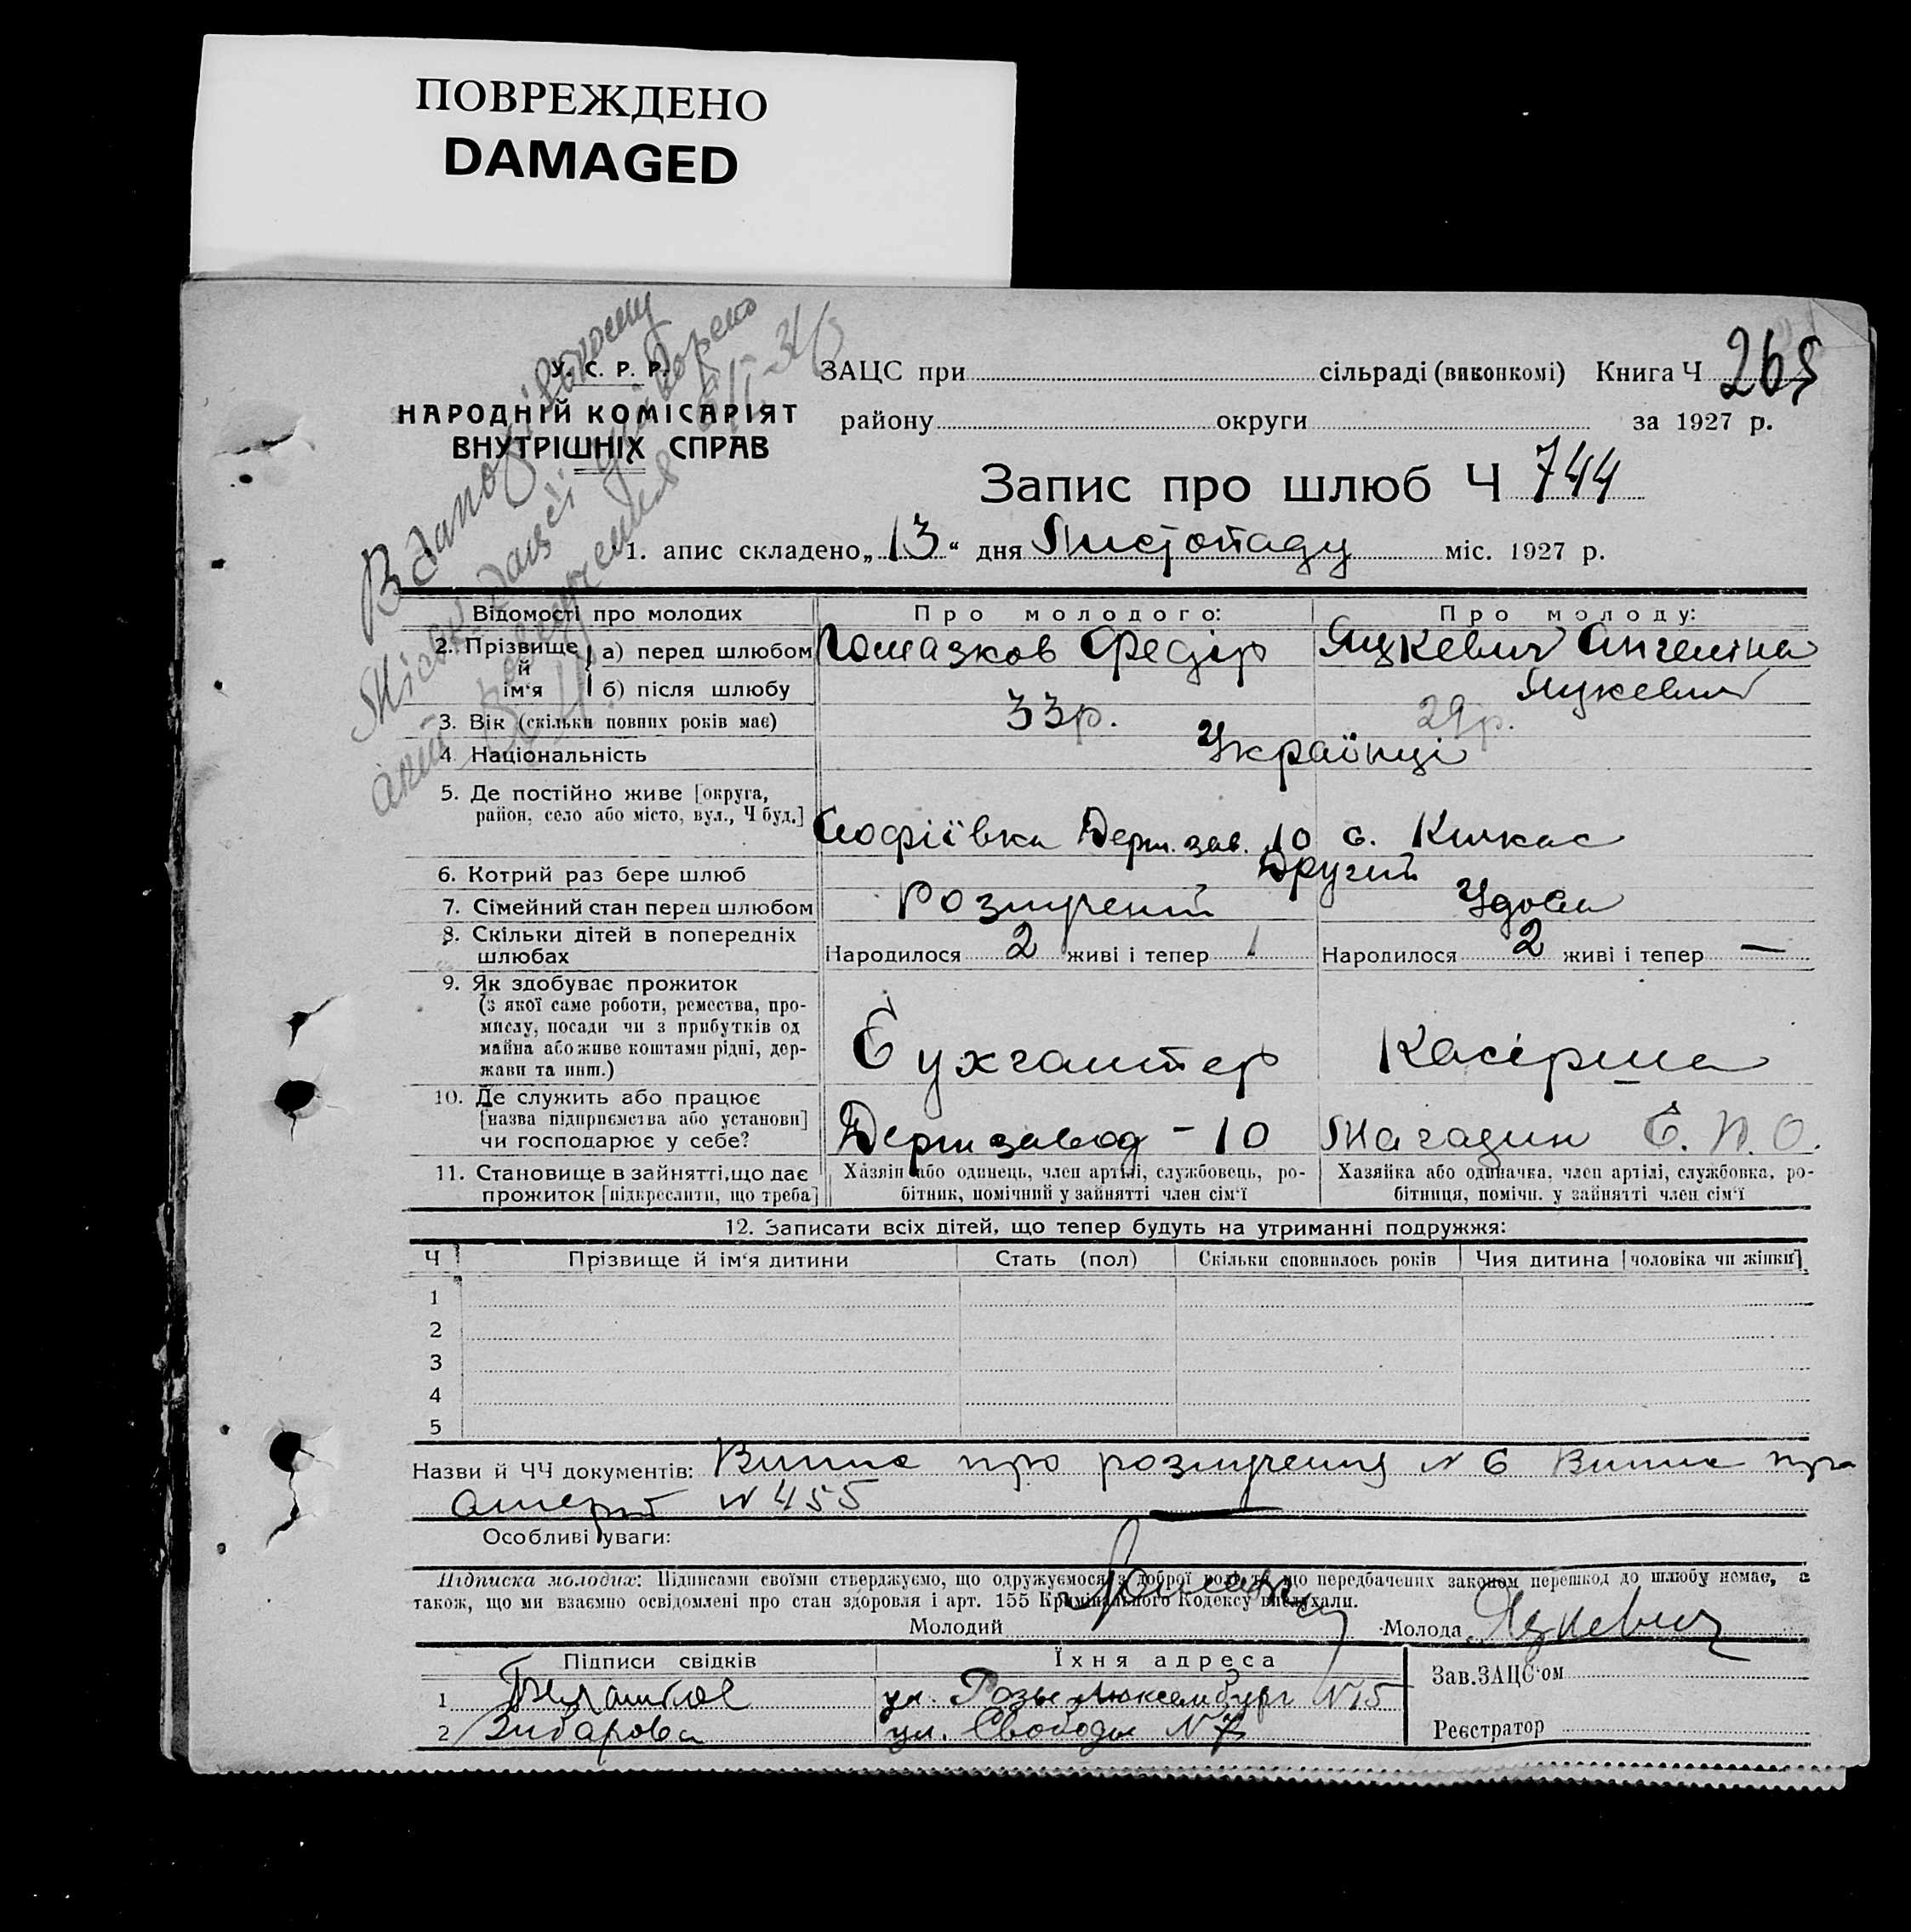 ПОВРЕЖДЕНО
DAMAGED
У. С. Р. Р.
НАРОДНІЙ КОМІСАРІЯТ
ВНУТРІШНІХ СПРАВ
ЗАЦС при сільраді (виконкомі) Книга Ч 265
району округи за 1927 р.
Запис про шлюб Ч 744
1. апис складено „13“ дня Листопаду міс. 1927 р.
Відомості про молодих Про молодого: Про молоду:
2. Прізвище й ім‘я а) перед шлюбом Помазков Федір Яцкевич Ангеліна
б) після шлюбу Яцкевич
3. Вік (скільки повних років має) 33р. 29р.
4 Національність Українці
5. Де постійно живе [округа,
район, село або місто, вул., Ч буд.] Софіївка Держ. зав. 10 с. Кичкас
6. Котрий раз бере шлюб Другий
7. Сімейний стан перед шлюбом Розлучений Удова
8. Скільки дітей в попередніх
шлюбах Народилося 2 живі і тепер 1 Народилося 2 живі і тепер —
9. Як здобуває прожиток
(з якої саме роботи, ремества, про-
мислу, посади чи з прибутків од
майна або живе коштами рідні, дер-
жави та инш.) Бухгалтер Касірша
10. Де служить або працює
[назва підприємства або установи]
чи господарює у себе? Держзавод - 10 Магазин Є. П. О.
11. Становище в зайнятті, що дає
прожиток [підкреслити, що треба]
Хазяін або одинець, член артілі, службовець, ро-
бітник, помічний у зайнятті член сім‘ї
Хазяйка або одиначка, член артілі, службовка, ро-
бітниця, помічн. у зайнятті член сім‘ї
12. Записати всіх дітей, що тепер будуть на утриманні подружжя:
Ч Прізвище й ім‘я дитини Стать (пол) Скільки сповнилось років Чия дитина [чоловіка чи жінки]
1
2
3
4
5
Назви й ЧЧ документів: Випис про розлучення N 6 Випис про
смерть N 455
Особливі уваги:
Підписка молодих: Підписами своїми стверджуємо, що одружуємося з доброї волі та що передбачених законом перешкод до шлюбу немає, а
також, що ми взаємно освідомлені про стан здоровля і арт. 155 Кримінального Кодексу вислухали.
Молодий Молода Яцкевич
Підписи свідків Їхня адреса Зав. ЗАЦС‘ом
1 ул. Розы Люксембург N 15
2 ул. Свободы N 7 Реєстратор